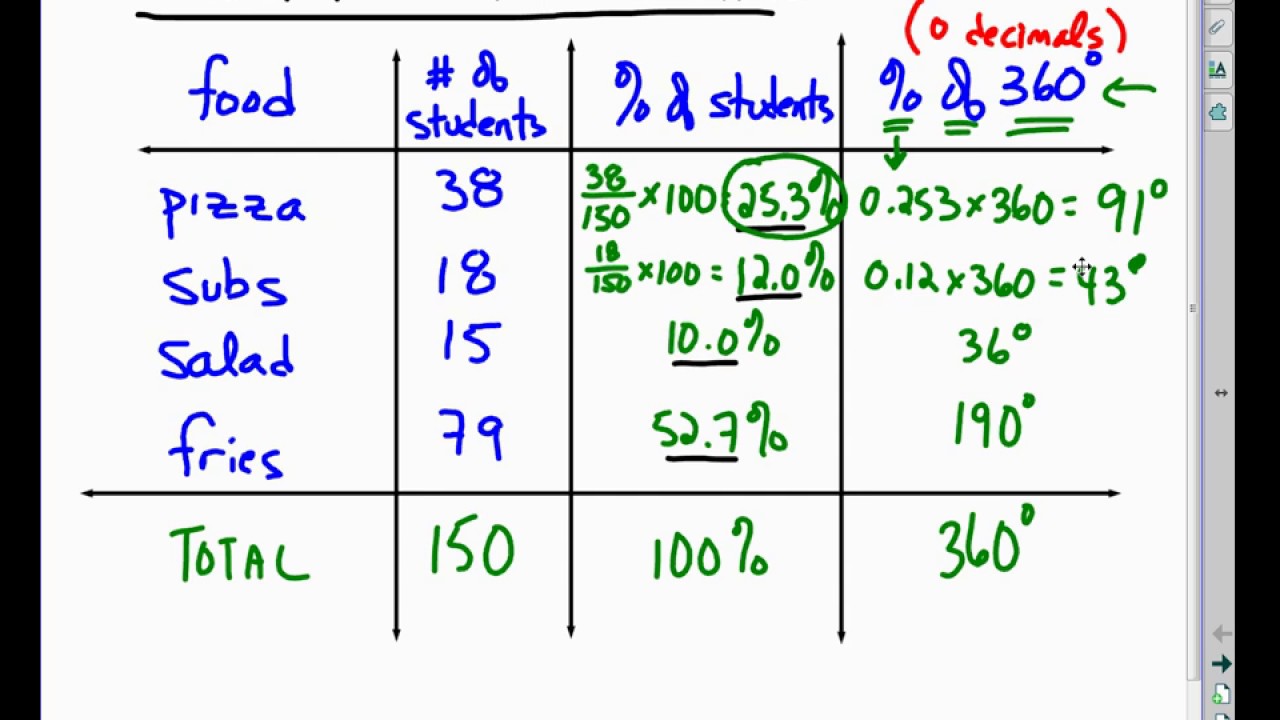 (0 decimals)
food # of students % of students % of 360° ←
pizza 38 38/150 ×100 25.3% 0.253×360= 91°
Subs 18 18/150 ×100 = 12.0% 0.12×360 = 43°
Salad 15 10.0% 36°
fries 79 52.7% 190°
TOTAL 150 100% 360°